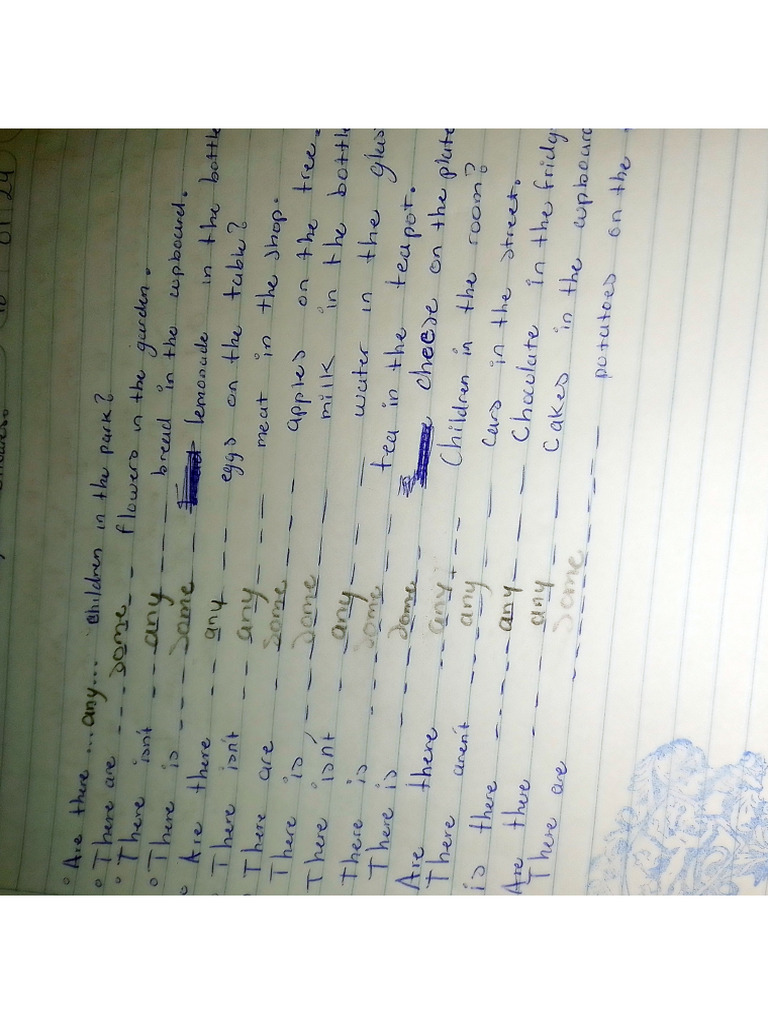 01 24
Are there ...any... children in the park?
There are ----some--- flowers in the garden.
There isn't ---any---- bread in the cupboard.
There is ----some---- lemonade in the bottle
Are there ---any--- eggs on the table?
There isn't ---any---- meat in the shop.
There are ----some---- apples on the tree.
There is ----some---- milk in the bottle
There isn't ---any---- water in the glass
There is ----some---- tea in the teapot.
There is ----some---- cheese on the plate
Are there ----any---- Children in the room?
There aren't ----any---- cars in the street.
is there ----any---- Choclate in the fridg
Are there ----any---- cakes in the cupboard
There are ----some---- potatoes on the